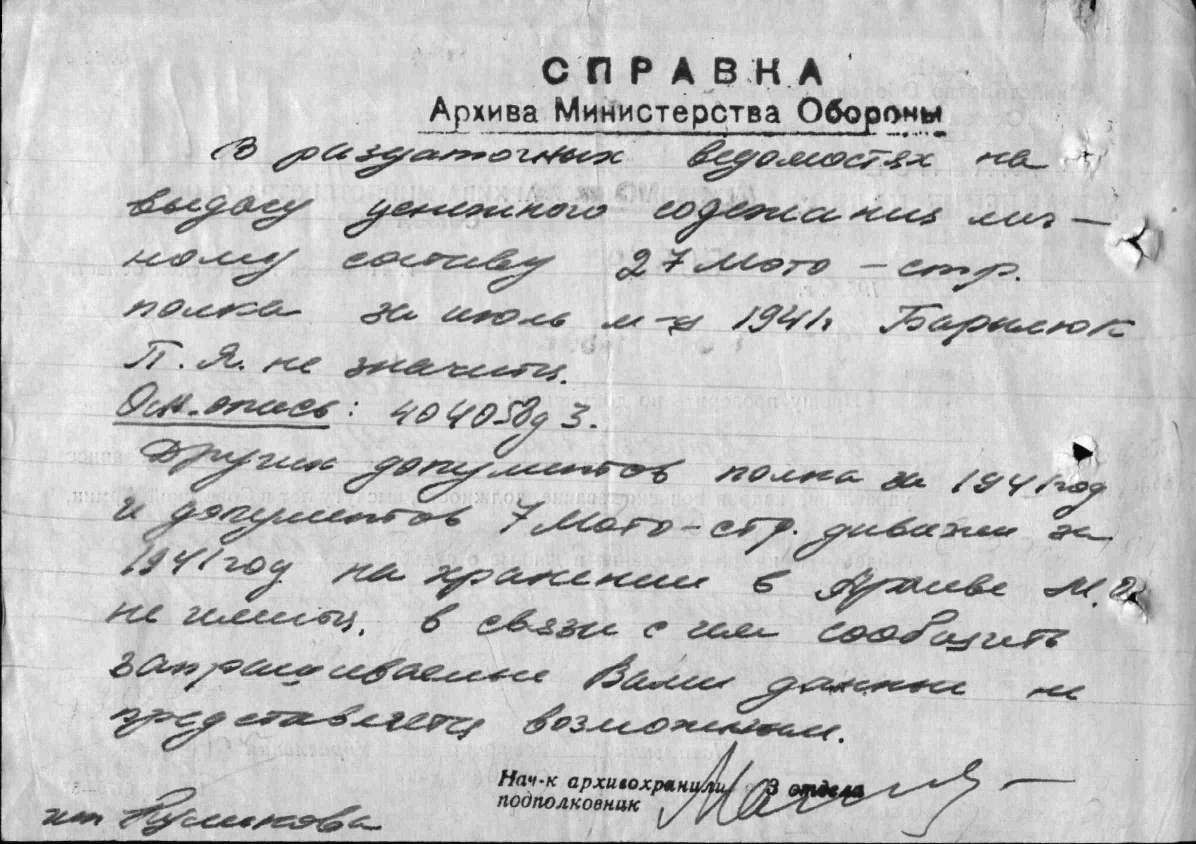 СПРАВКА
Архива Министерства Обороны
В раздаточных ведомостях на
выдачу денежного содержания лич-
ному составу 27 Мото-стр.
полка за июль м-ц 1941г. Барилюк
П. Я. не значится.
Осн. опись: 404058д 3.
Других документов полка за 1941 год
и документов 7 Мото-стр. дивизии за
1941 год на хранении в Архиве М.О.
не имеется, в связи с чем сообщить
запрашиваемые Вами данные не
представляется возможным.
Нач-к архивохранили 3 отдела
подполковник
исп Куликова